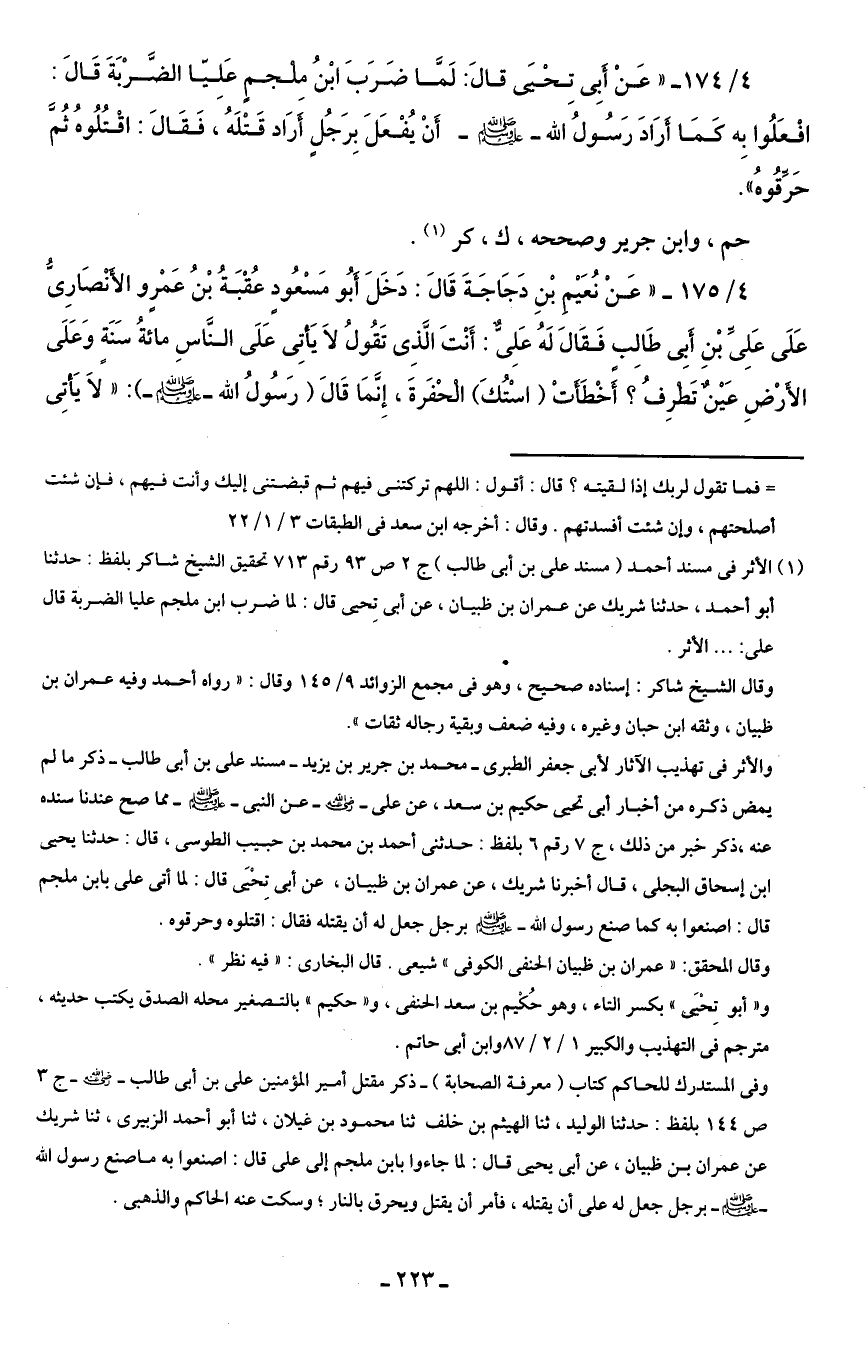 ٤/ ١٧٤ـ « عَنْ أَبِى تِحْيَى قالَ: لَمَّا ضَرَبَ ابْنُ مِلْجمٍ عَلِيّا الضَّرْبَةَ قَالَ :
افْعَلُوا بِه كَمَا أَرَادَ رَسُولُ الله ـ ﷺ ـ أَنْ يُفْعَلَ بِرَجُلٍ أَرَاد قَتْلَهُ ، فَقَالَ : اقْتُلُوهُ ثُمَّ
حَرِّقُوهُ».
حم ، وابن جرير وصححه ، ك ، كر (١) .
٤/ ١٧٥ ـ « عَنْ نُعَيْمِ بْنِ دَجَاجَةَ قَالَ : دَخَلَ أَبُو مَسْعُودٍ عُقْبَةُ بْنُ عَمْرٍو الأَنْصَارِىُّ
عَلَى عَلِىِّ بْنِ أَبِى طَالِبٍ فَقَالَ لَهُ عَلِىٌّ : أَنْتَ الَّذِى تَقُولُ لاَ يَأتِى عَلَى النَّاسِ مائَةُ سَنَةٍ وَعَلَى
الأَرْضِ عَيْنٌ تَطْرِفُ ؟ أَخْطَأَتْ ( اسْتُكَ) الْحُفْرَةَ ، إِنَّمَا قَالَ ( رَسُولُ الله ـ ﷺ ـ): « لاَ يَأتِى
= فما تقول لربك إذا لقيته ؟ قال : أقول : اللهم تركتنى فيهم ثم قبضتنى إليك وأنت فيهم ، فإن شئت
أصلحتهم ، وإن شئت أفسدتهم . وقال : أخرجه ابن سعد فى الطبقات ٣ /١ /٢٢
(١) الأثر فى مسند أحمد ( مسند على بن أبى طالب ) ج ٢ ص ٩٣ رقم ٧١٣ تحقيق الشيخ شاكر بلفظ : حدثنا
أبو أحمد ، حدثنا شريك عن عمران بن ظبيان ، عن أبى تحيى قال : لما ضرب ابن ملجم عليا الضربة قال
على: ... الأثر .
وقال الشيخ شاكر : إسناده صحيح ، وهو فى مجمع الزوائد ٩/ ١٤٥ وقال : « رواه أحمد وفيه عمران بن
ظبيان ، وثقه ابن حبان وغيره ، وفيه ضعف وبقية رجاله ثقات ».
والأثر فى تهذيب الآثار لأبى جعفر الطبرى ـ محمد بن جرير بن يزيد ـ مسند على بن أبى طالب ـ ذكر ما لم
يمض ذكره من أخبار أبى تحيى حكيم بن سعد ، عن على ـ رضي الله عنه ـ عن النبى ـ ﷺ ـ مما صح عندنا سنده
عنه ،ذكر خبر من ذلك ، ج ٧ رقم ٦ بلفظ : حدثنى أحمد بن محمد بن حبيب الطوسى ، قال : حدثنا يحيى
ابن إسحاق البجلى ، قال أخبرنا شريك ، عن عمران بن ظبيان ، عن أبى تِحْيَى قال : لما أتى على بابن ملجم
قال : اصنعوا به كما صنع رسول الله ـ ﷺ برجل جعل له أن يقتله فقال : اقتلوه وحرقوه .
وقال المحقق: « عمران بن ظبيان الحنفى الكوفى » شيعى . قال البخارى : « فيه نظر » .
و« أبو تِحْيَى » بكسر التاء ، وهو حُكْيم بن سعد الحنفى ، و« حكيم » بالتصغير محله الصدق يكتب حديثه ،
مترجم فى التهذيب والكبير ١ /٢ /٨٧ وابن أبى حاتم .
وفى المستدرك للحاكم كتاب ( معرفة الصحابة ) ـ ذكر مقتل أمير المؤمنين على بن أبى طالب ـ رضي الله عنه ـ ج ٣
ص ١٤٤ بلفظ : حدثنا الوليد ، ثنا الهيثم بن خلف ثنا محمود بن غيلان ، ثنا أبو أحمد الزبيرى ، ثنا شريك
عن عمران بن ظبيان ، عن أبى يحيى قال : لما جاءوا بابن ملجم إلى على قال : اصنعوا به ماصنع رسول الله
ـ ﷺ ـ برجل جعل له على أن يقتله ، فأمر أن يقتل ويحرق بالنار ؛ وسكت عنه الحاكم والذهبى .
ـ ٢٢٣ ـ